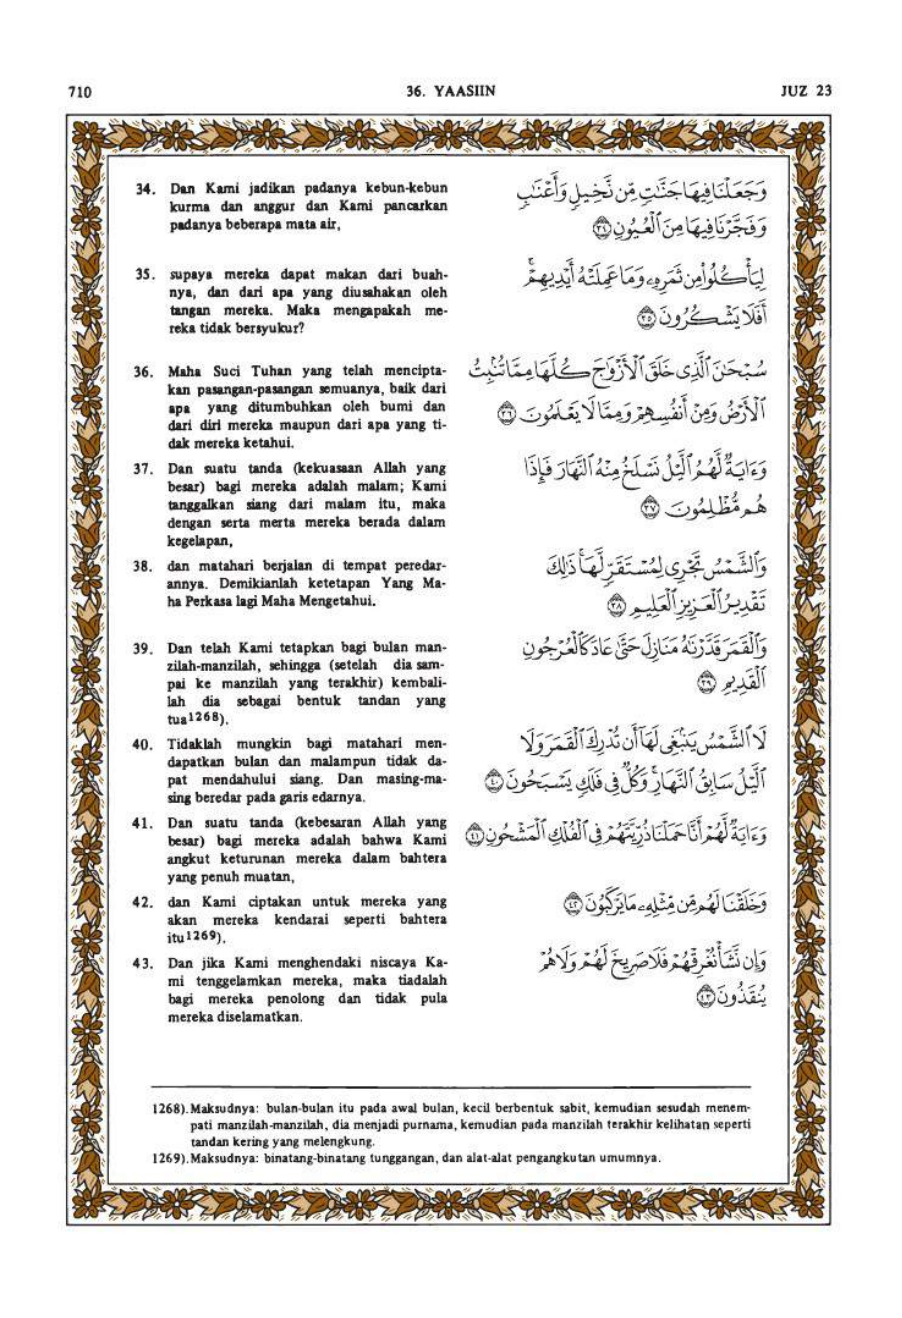 710
36. YAASIIN
JUZ 23
34. Dan Kami jadikan padanya kebun-kebun
kurma dan anggur dan Kami pancarkan
padanya beberapa mata air,
وَجَعَلْنَا فِيهَا جَنَّٰتٍ مِّن نَّخِيلٍ وَأَعْنَٰبٍ
وَفَجَّرْنَا فِيهَا مِنَ ٱلْعُيُونِ ٣٤
35. supaya mereka dapat makan dari buah-
nya, dan dari apa yang diusahakan oleh
tangan mereka. Maka mengapakah me-
reka tidak bersyukur?
لِيَأْكُلُوا۟ مِن ثَمَرِهِۦ وَمَا عَمِلَتْهُ أَيْدِيهِمْ ۖ
أَفَلَا يَشْكُرُونَ ٣٥
36. Maha Suci Tuhan yang telah mencipta-
kan pasangan-pasangan semuanya, baik dari
apa yang ditumbuhkan oleh bumi dan
dari diri mereka maupun dari apa yang ti-
dak mereka ketahui.
سُبْحَٰنَ ٱلَّذِى خَلَقَ ٱلْأَزْوَٰجَ كُلَّهَا مِمَّا تُنۢبِتُ
ٱلْأَرْضُ وَمِنْ أَنفُسِهِمْ وَمِمَّا لَا يَعْلَمُونَ ٣٦
37. Dan suatu tanda (kekuasaan Allah yang
besar) bagi mereka adalah malam; Kami
tanggalkan siang dari malam itu, maka
dengan serta merta mereka berada dalam
kegelapan,
وَءَايَةٌ لَّهُمُ ٱلَّيْلُ نَسْلَخُ مِنْهُ ٱلنَّهَارَ فَإِذَا
هُم مُّظْلِمُونَ ٣٧
38. dan matahari berjalan di tempat peredar-
annya. Demikianlah ketetapan Yang Ma-
ha Perkasa lagi Maha Mengetahui.
وَٱلشَّمْسُ تَجْرِى لِمُسْتَقَرٍّ لَّهَا ۚ ذَٰلِكَ
تَقْدِيرُ ٱلْعَزِيزِ ٱلْعَلِيمِ ٣٨
39. Dan telah Kami tetapkan bagi bulan man-
zilah-manzilah, sehingga (setelah dia sam-
pai ke manzilah yang terakhir) kembali-
lah dia sebagai bentuk tandan yang
tua1268).
وَٱلْقَمَرَ قَدَّرْنَٰهُ مَنَازِلَ حَتَّىٰ عَادَ كَٱلْعُرْجُونِ
ٱلْقَدِيمِ ٣٩
40. Tidaklah mungkin bagi matahari men-
dapatkan bulan dan malampun tidak da-
pat mendahului siang. Dan masing-ma-
sing beredar pada garis edarnya.
لَا ٱلشَّمْسُ يَنۢبَغِى لَهَآ أَن تُدْرِكَ ٱلْقَمَرَ وَلَا
ٱلَّيْلُ سَابِقُ ٱلنَّهَارِ ۚ وَكُلٌّ فِى فَلَكٍ يَسْبَحُونَ ٤٠
41. Dan suatu tanda (kebesaran Allah yang
besar) bagi mereka adalah bahwa Kami
angkut keturunan mereka dalam bahtera
yang penuh muatan,
وَءَايَةٌ لَّهُمْ أَنَّا حَمَلْنَا ذُرِّيَّتَهُمْ فِى ٱلْفُلْكِ ٱلْمَشْحُونِ ٤١
42. dan Kami ciptakan untuk mereka yang
akan mereka kendarai seperti bahtera
itu1269).
وَخَلَقْنَا لَهُم مِّن مِّثْلِهِۦ مَا يَرْكَبُونَ ٤٢
43. Dan jika Kami menghendaki niscaya Ka-
mi tenggelamkan mereka, maka tiadalah
bagi mereka penolong dan tidak pula
mereka diselamatkan.
وَإِن نَّشَأْ نُغْرِقْهُمْ فَلَا صَرِيخَ لَهُمْ وَلَا هُمْ
يُنقَذُونَ ٤٣
1268). Maksudnya: bulan-bulan itu pada awal bulan, kecil berbentuk sabit, kemudian sesudah menem-
pati manzilah-manzilah, dia menjadi purnama, kemudian pada manzilah terakhir kelihatan seperti
tandan kering yang melengkung.
1269). Maksudnya: binatang-binatang tunggangan, dan alat-alat pengangkutan umumnya.